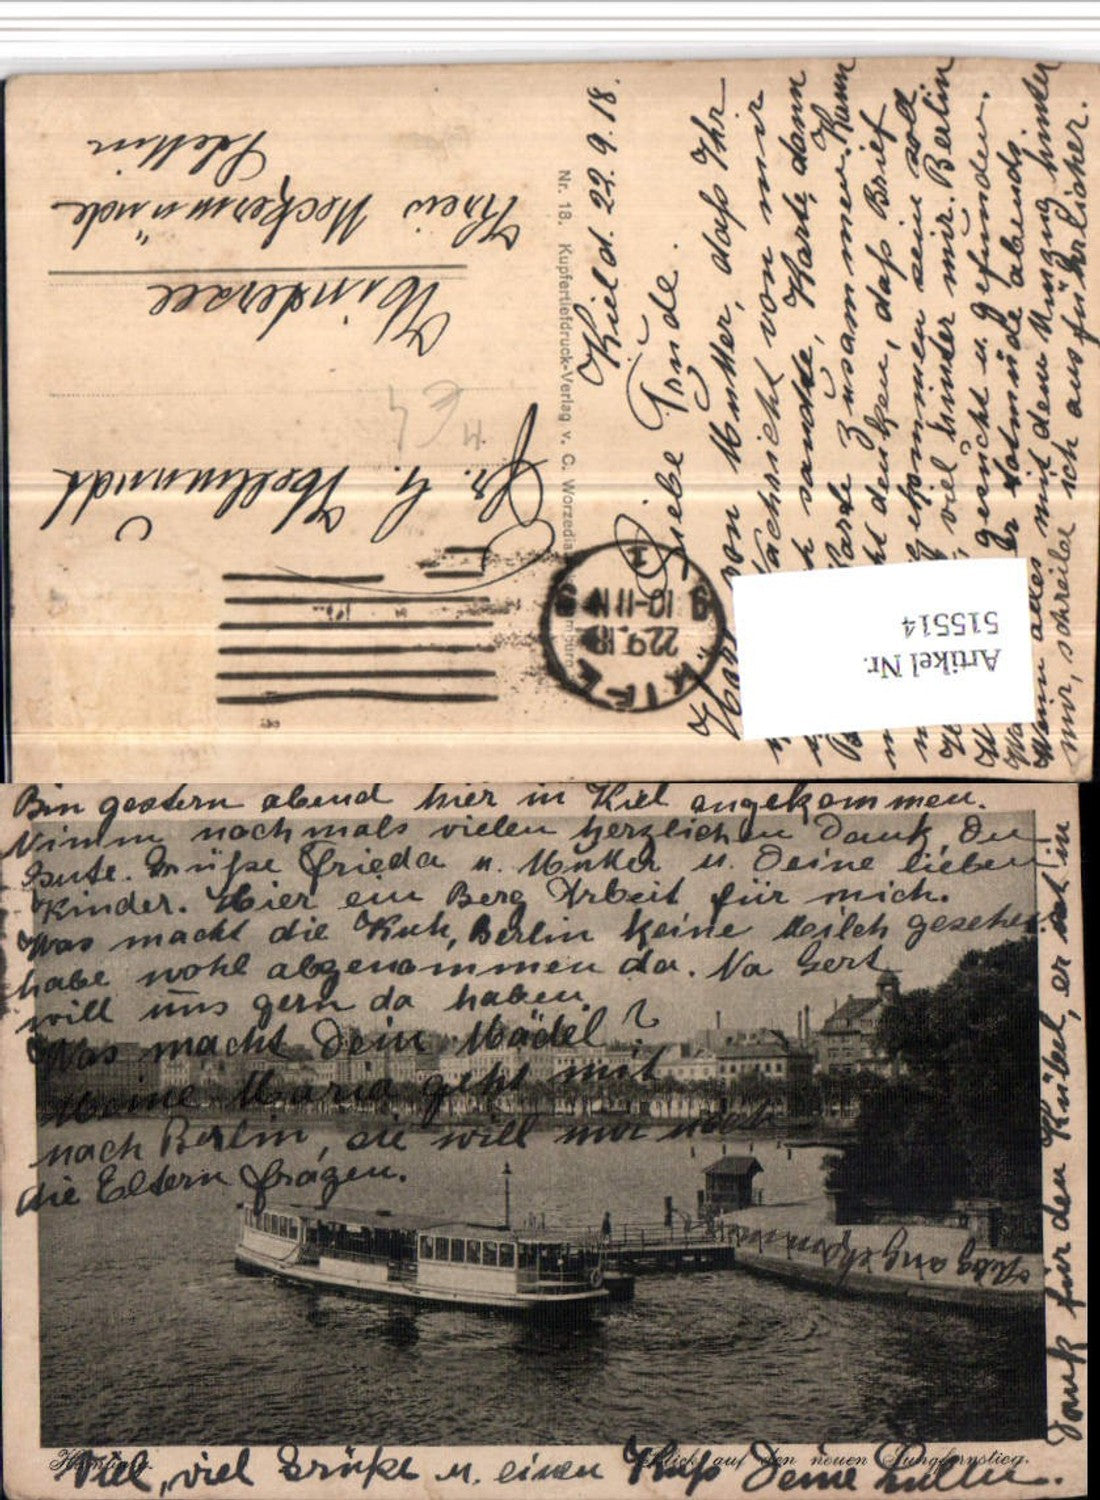 Kiel d. 22.9.18.
Liebe Trude.
von Mutter, daß Ihr
Nachricht von mir
sandte, Karte, dann
Karte zusammen. Kann
denken, daß Brief
gekommen sein soll.
viel hinter mir. Berlin
gesucht u. gefunden.
todmüde abends
Wenn alles mit dem Umzug hinter
mir, schreibe ich ausführlicher.
Nr. 18. Kupfertiefdruck-Verlag v. C. Worzedia
KIEL
22.9.18
10-11 N
Artikel Nr.
515514
Kreis Ueckermünde
Stettin
Bin gestern abend hier in Kiel angekommen.
Nimm nochmals vielen herzlichen Dank, Du
Gute. Grüße Frieda u. Mutter u. Deine lieben
Kinder. Hier ein Berg Arbeit für mich.
Was macht die Kuh, Berlin keine Milch gesehen
habe wohl abgenommen da. Na Gert
will uns gern da haben.
Was macht Dein Mädel?
Meine Maria geht mit
nach Berlin, sie will nur noch
die Eltern fragen.
Dank für den Kübel, er ist in
Hamburg.
Blick auf den neuen Jungfernstieg.
Viel, viel Grüße u. einen Kuß Deine